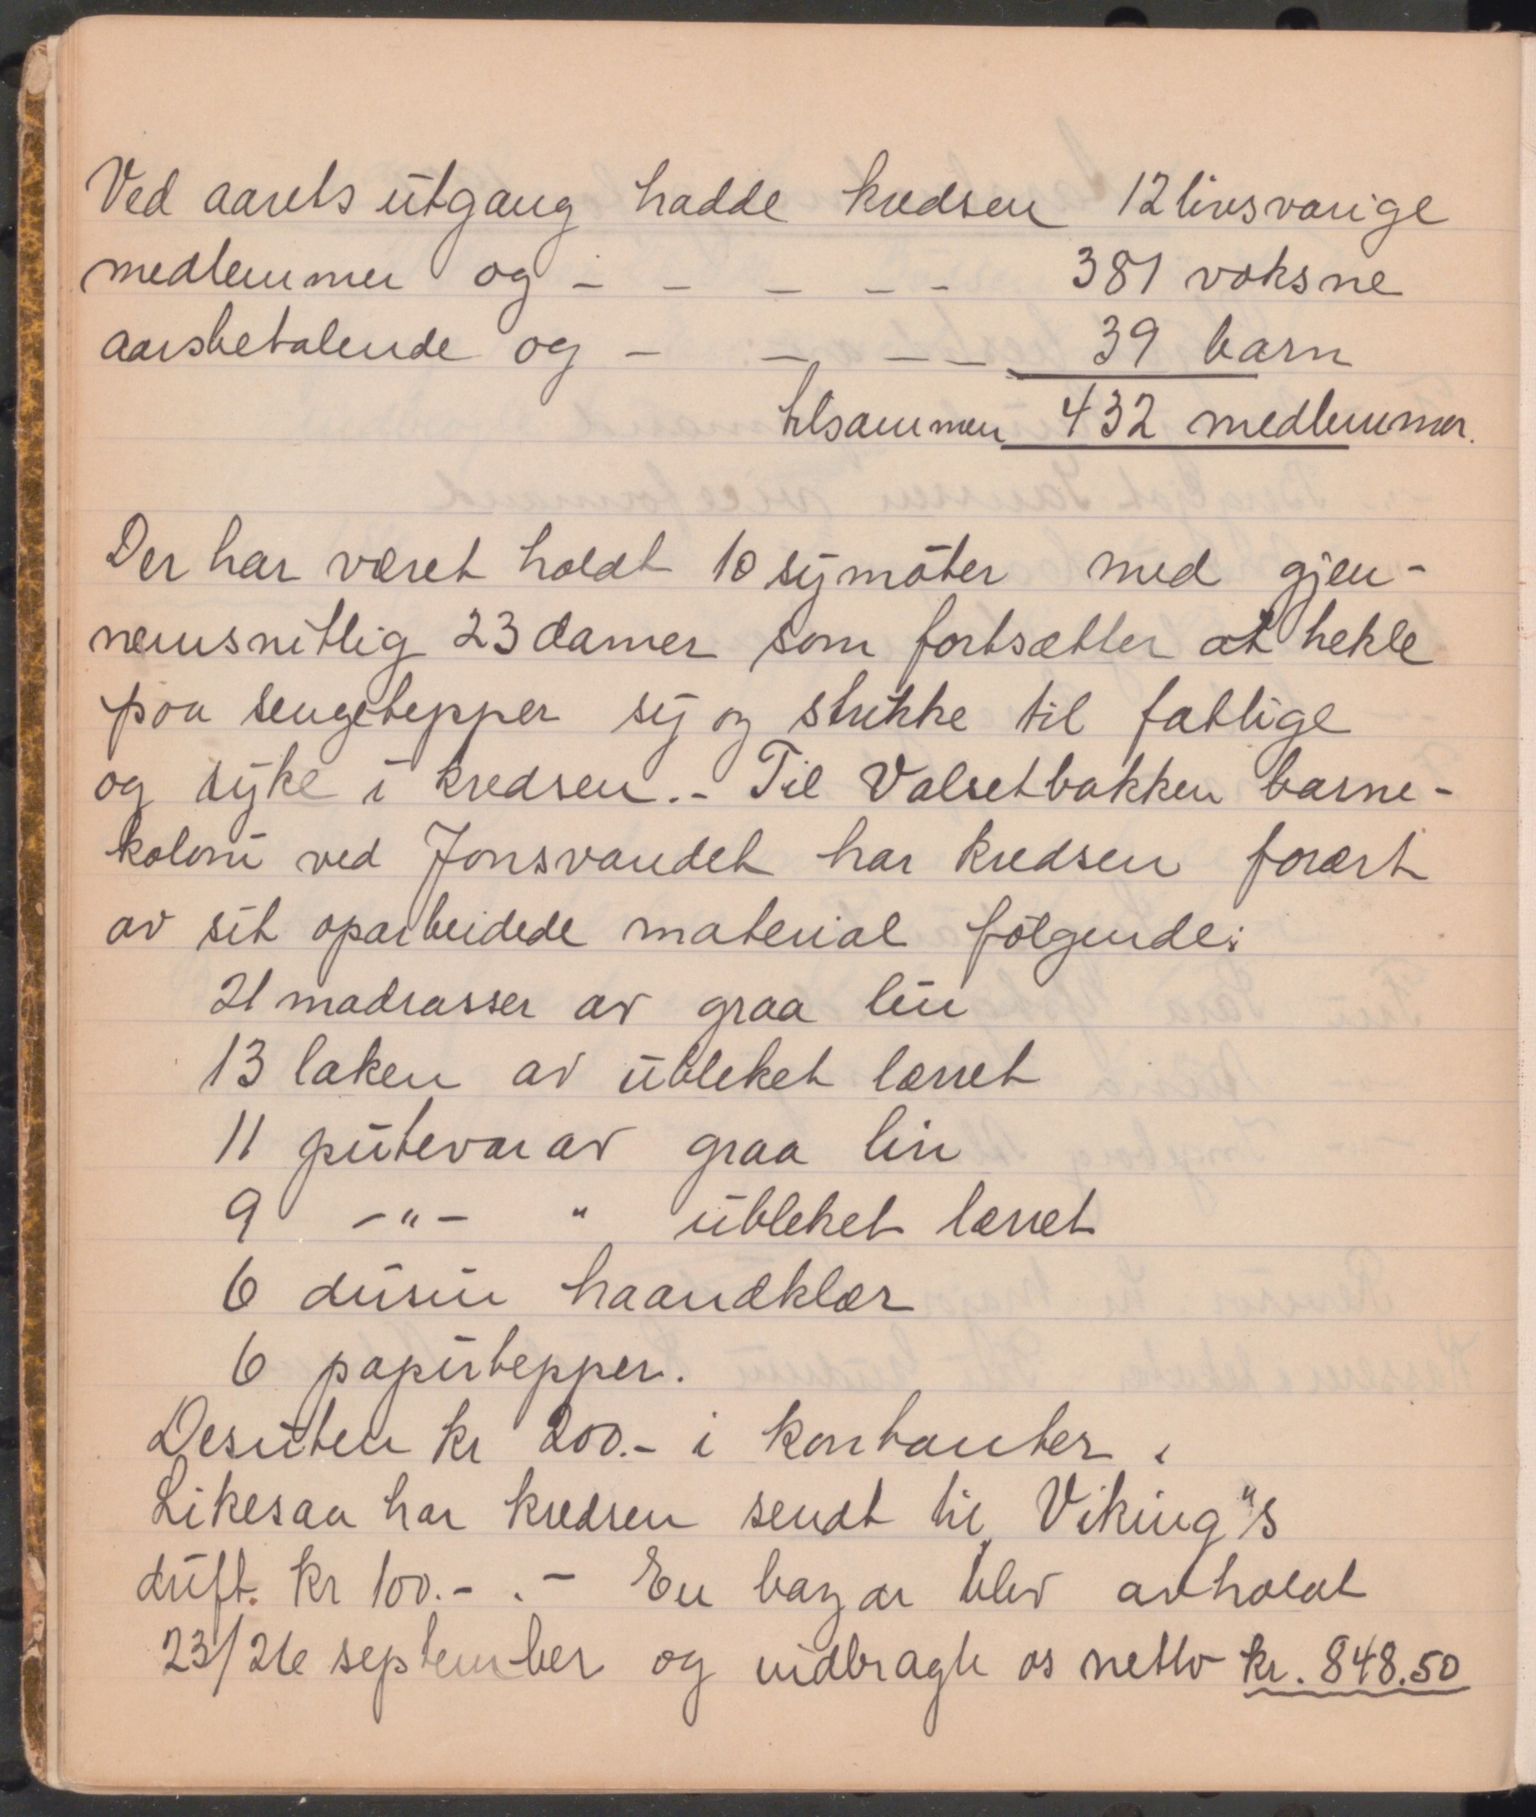 Ved aarets utgang hadde kredsen 12 livsvarige
medlemmer og - - - - - 381 voksne
aarsbetalende og - - - - 39 barn
tilsammen 432 medlemmer.
Der har været holdt 10 symöter med gjen-
nemsnitlig 23 damer som fortsætter at hekle
paa sengetepper sy og strikke til fattige
og syke i kredsen.- Til Valsetbakken barne-
koloni ved Jonsvandet har kredsen forært
av sit oparbeidede material følgende:
21 madrasser av graa lin
13 laken av ubleket lærret
11 putevar av graa lin
9 -"- " ubleket lærret
6 dusin haandklær
6 papirtepper.
Desuten kr 200.- i kontanter.
Likesaa har kredsen sendt til Viking"s
drift. kr 100.- .- En bazar blev avholdt
23/26 september og indbragte os netto kr. 848.50